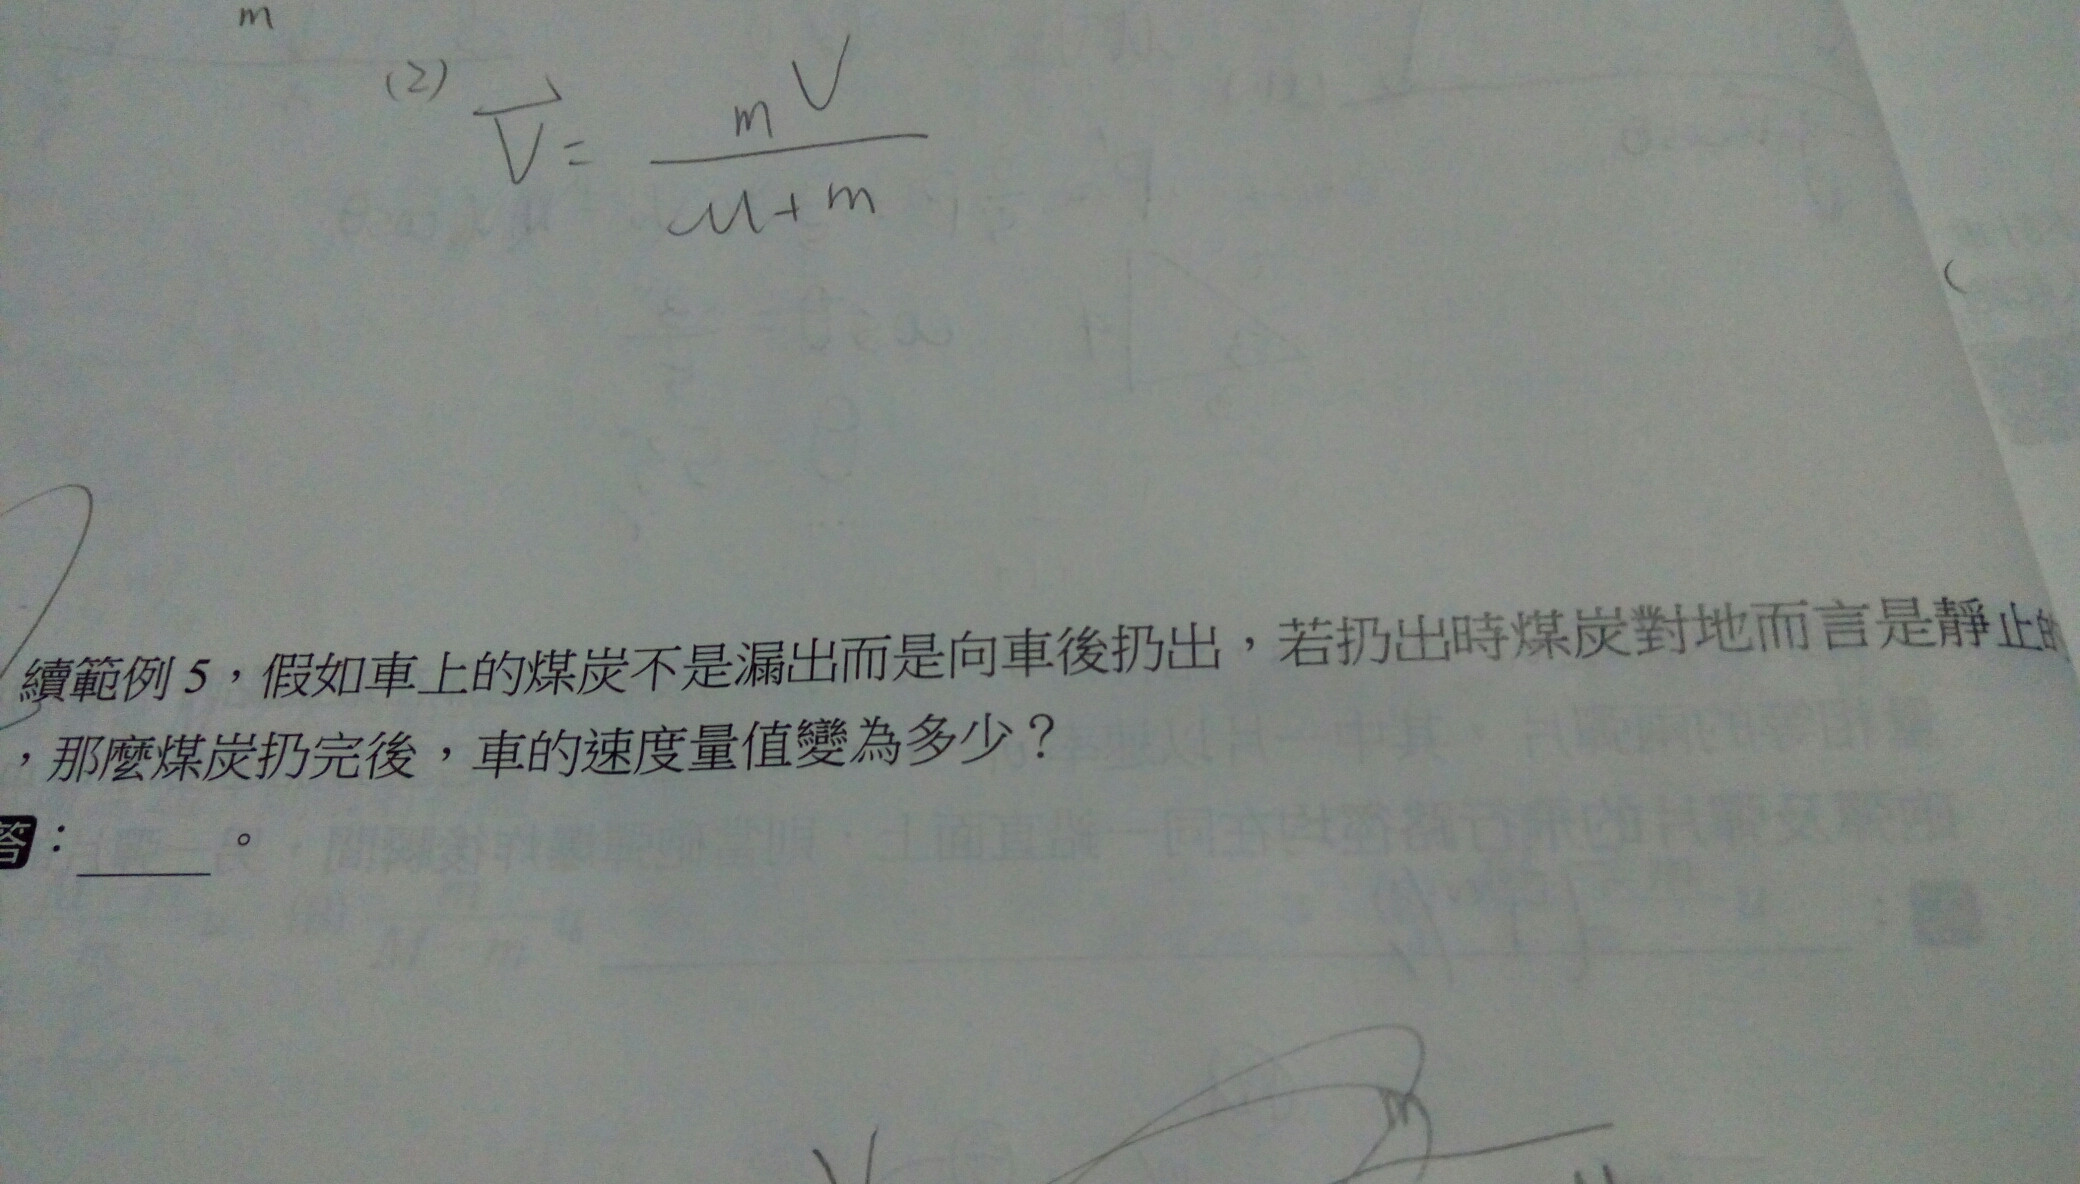 m
(2) V = mV / M+m
續範例 5，假如車上的煤炭不是漏出而是向車後扔出，若扔出時煤炭對地而言是靜止的
，那麼煤炭扔完後，車的速度量值變為多少？
答：＿＿＿。
V m